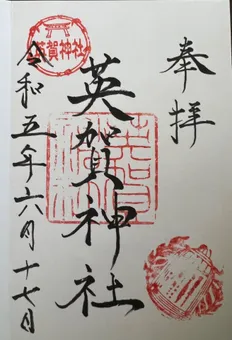 奉拝
英賀神社
令和五年六月十七日
英賀神社